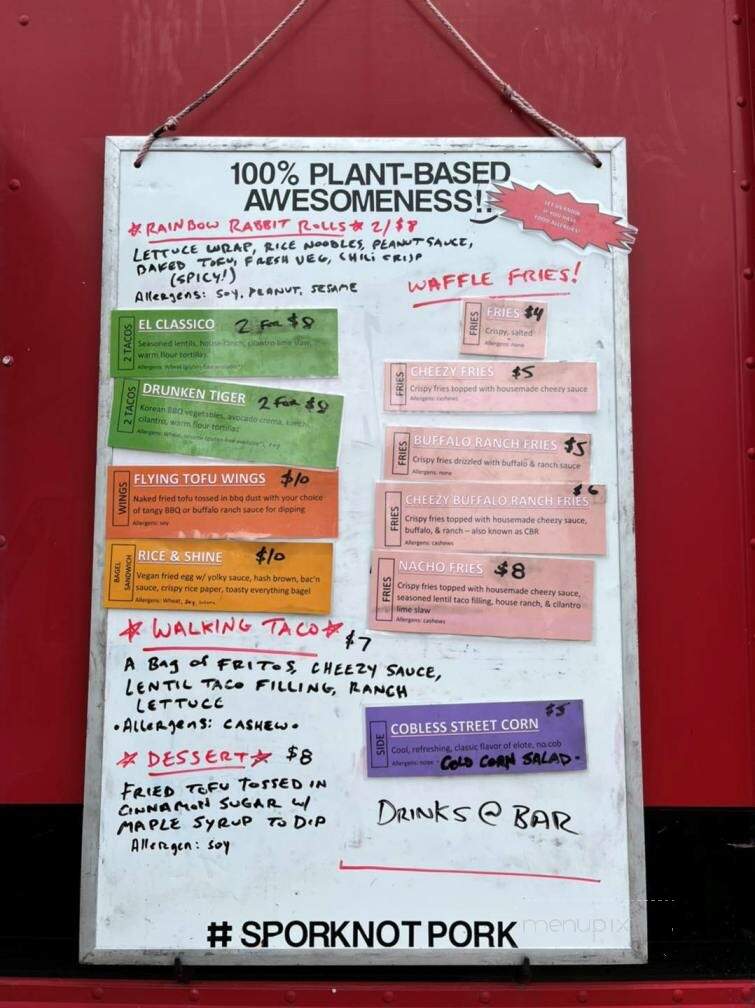 100% PLANT-BASED
AWESOMENESS!!
LET US KNOW
IF YOU HAVE
FOOD ALLERGIES!
RAINBOW RABBIT ROLLS 2/$8
LETTUCE WRAP, RICE NOODLES, PEANUT SAUCE,
BAKED TOFU, FRESH VEG, CHILI CRISP
(SPICY!)
Allergens: Soy, PEANUT, SESAME
2 TACOS
EL CLASSICO 2 FOR $8
Seasoned lentils, house ranch, cilantro lime slaw,
warm flour tortillas
Allergens: Wheat (gluten-free available*)
2 TACOS
DRUNKEN TIGER 2 FOR $8
Korean BBQ vegetables, avocado crema, kimchi,
cilantro, warm flour tortillas
Allergens: Wheat, sesame (gluten-free available*), soy
WINGS
FLYING TOFU WINGS $10
Naked fried tofu tossed in bbq dust with your choice
of tangy BBQ or buffalo ranch sauce for dipping
Allergens: soy
BAGEL
SANDWICH
RICE & SHINE $10
Vegan fried egg w/ yolky sauce, hash brown, bac'n
sauce, crispy rice paper, toasty everything bagel
Allergens: Wheat, soy, sesame
WALKING TACO $7
A BAG of FRITOS, CHEEZY SAUCE,
LENTIL TACO FILLING, RANCH
LETTUCE
• Allergens: CASHEW •
DESSERT $8
FRIED TOFU TOSSED IN
CINNAMON SUGAR w/
MAPLE SYRUP TO DIP
Allergen: Soy
WAFFLE FRIES!
FRIES
FRIES $4
Crispy, salted
Allergens: none
FRIES
CHEEZY FRIES $5
Crispy fries topped with housemade cheezy sauce
Allergens: cashews
FRIES
BUFFALO RANCH FRIES $5
Crispy fries drizzled with buffalo & ranch sauce
Allergens: none
FRIES
CHEEZY BUFFALO RANCH FRIES $6
Crispy fries topped with housemade cheezy sauce,
buffalo, & ranch – also known as CBR
Allergens: cashews
FRIES
NACHO FRIES $8
Crispy fries topped with housemade cheezy sauce,
seasoned lentil taco filling, house ranch, & cilantro
lime slaw
Allergens: cashews
SIDE
COBLESS STREET CORN $5
Cool, refreshing, classic flavor of elote, no cob
Allergens: none - COLD CORN SALAD -
DRINKS @ BAR
# SPORKNOTPORK
menupix